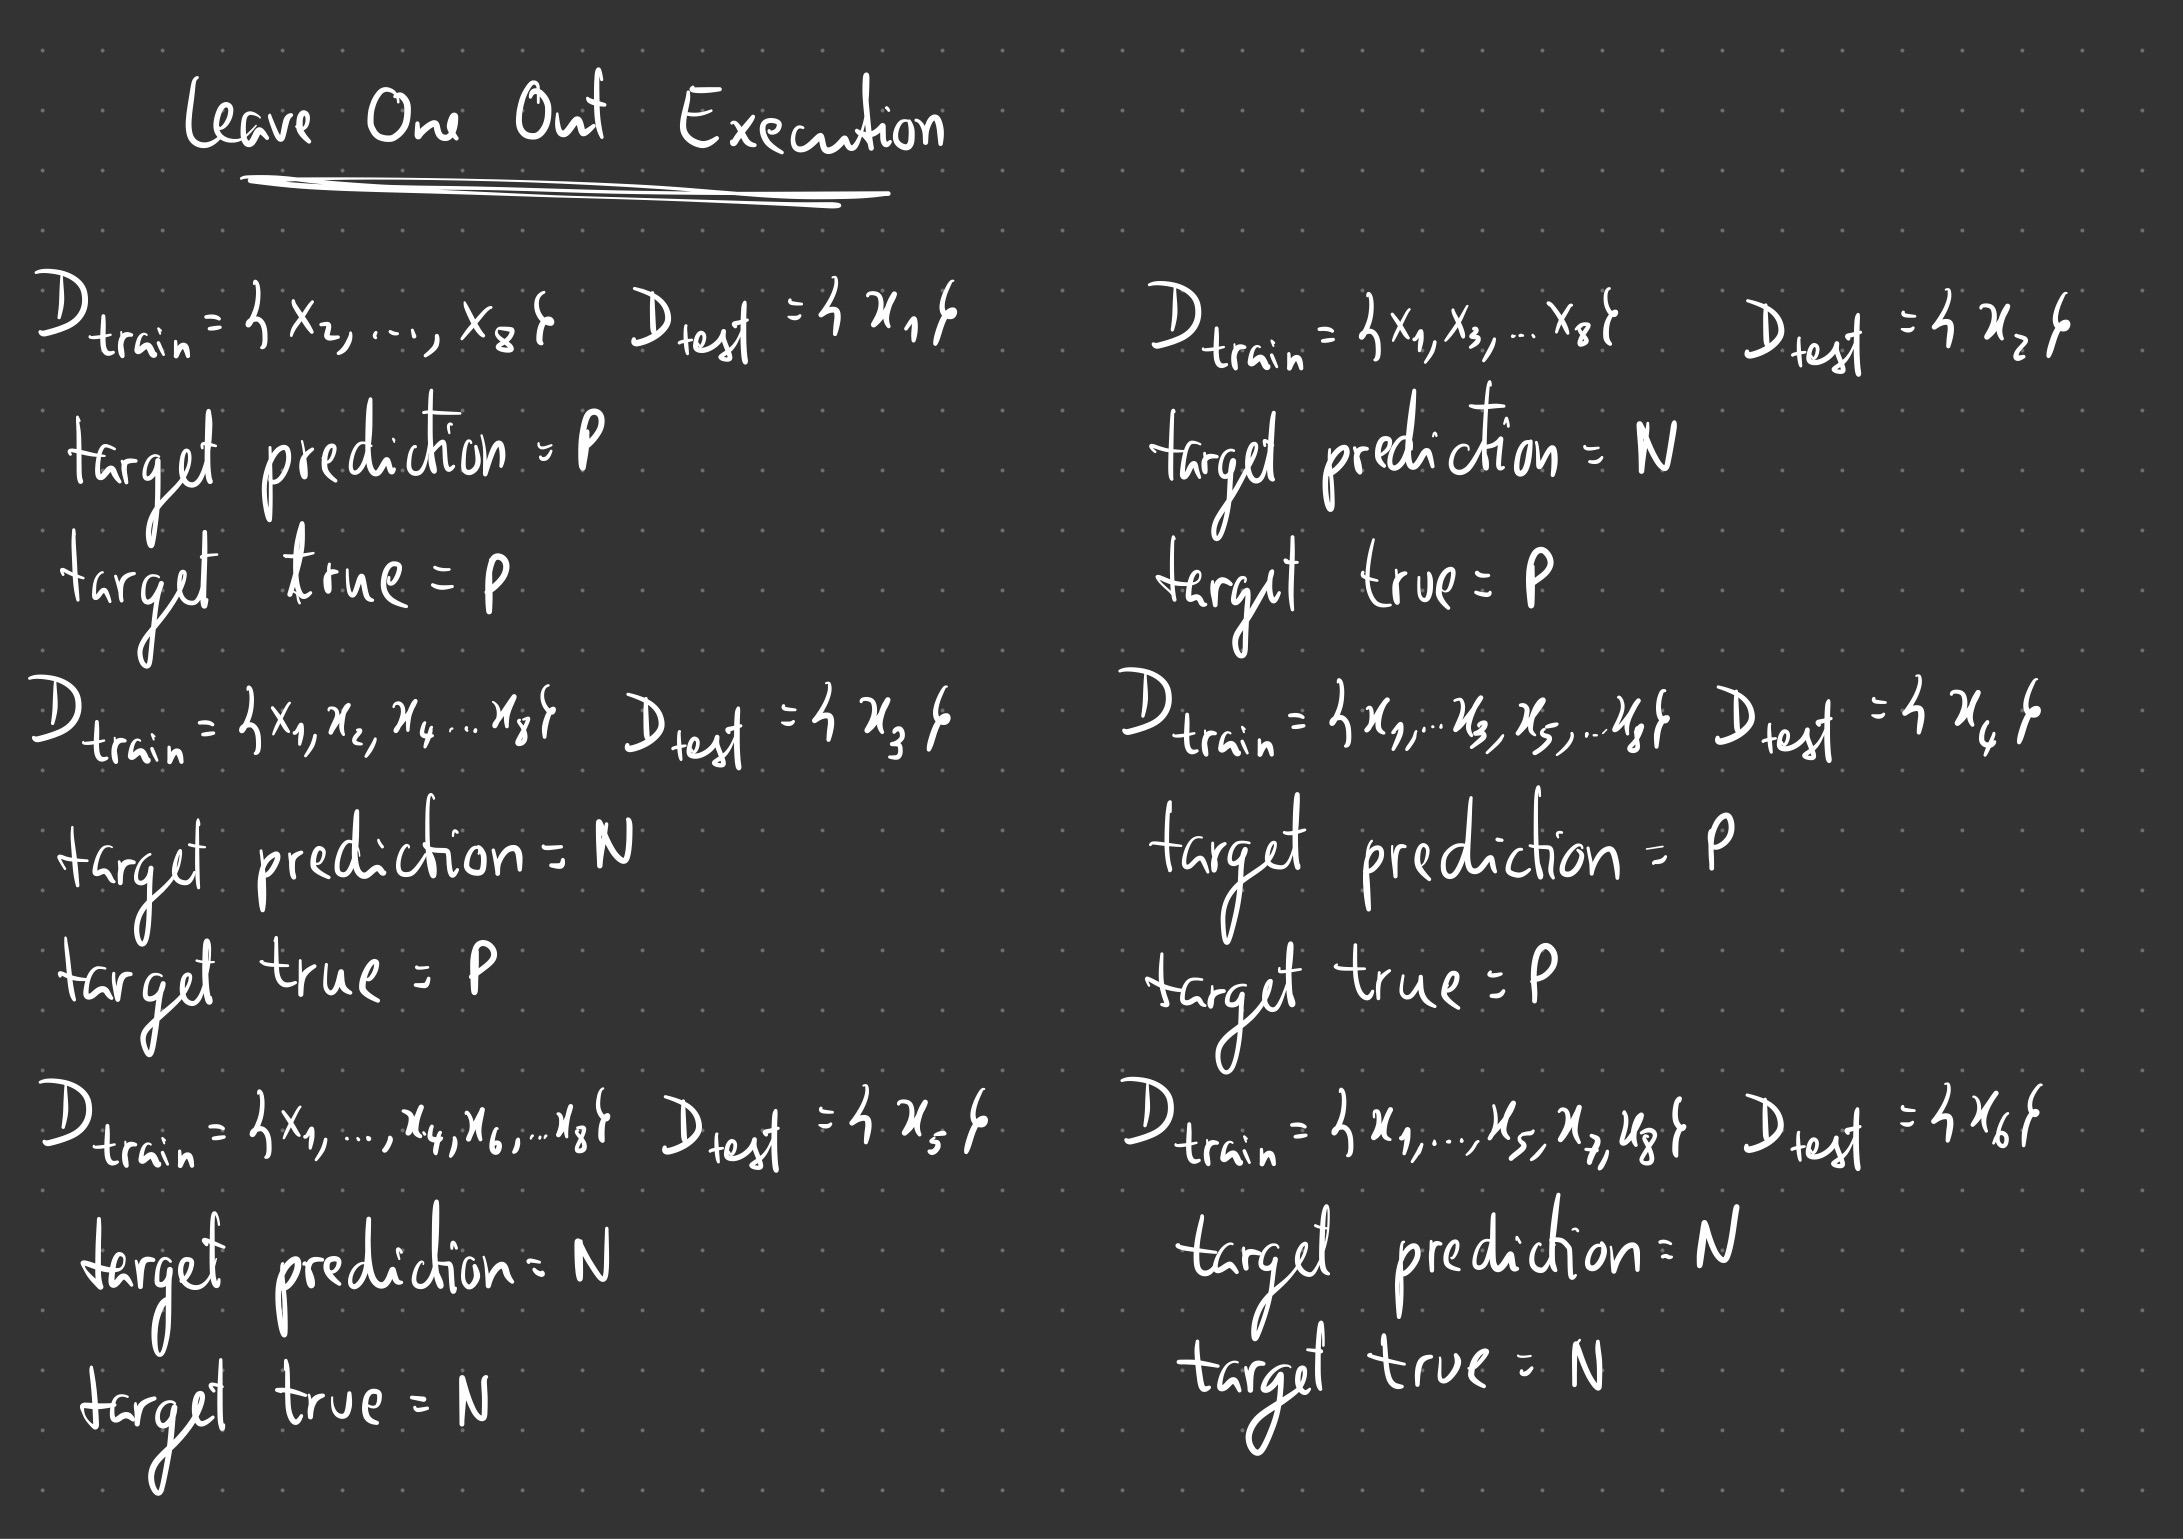 Leave One Out Execution
D_train = {x_2, ..., x_8} D_test = {x_1}
target prediction = P
target true = P
D_train = {x_1, x_3, ... x_8} D_test = {x_2}
target prediction = N
target true = P
D_train = {x_1, x_2, x_4 ... x_8} D_test = {x_3}
target prediction = N
target true = P
D_train = {x_1, ... x_3, x_5, ... x_8} D_test = {x_4}
target prediction = P
target true = P
D_train = {x_1, ..., x_4, x_6, ... x_8} D_test = {x_5}
target prediction = N
target true = N
D_train = {x_1, ..., x_5, x_7, x_8} D_test = {x_6}
target prediction = N
target true = N